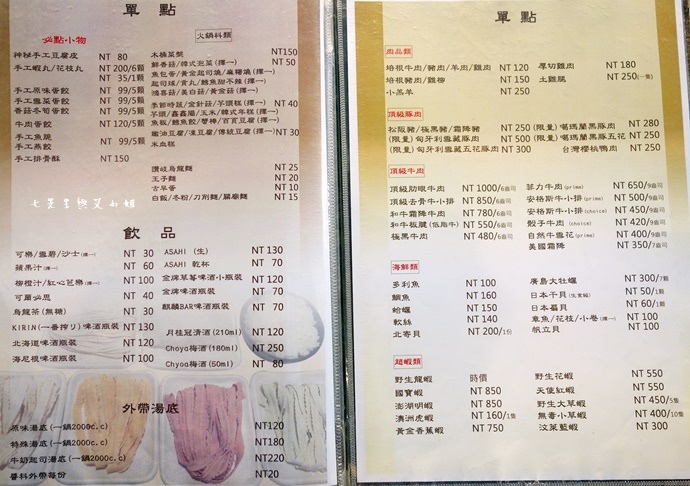 單點
必點小物
神秘手工豆腐皮 NT 80
手工蝦丸/花枝丸 NT 200/6顆
NT 35/1顆
手工原味蛋餃 NT 99/5顆
手工雪菜蛋餃 NT 99/5顆
香菇冬筍蛋餃 NT 99/5顆
牛肉蛋餃 NT 120/5顆
手工魚脆
手工燕餃 NT 99/5顆
手工排骨酥 NT 150
火鍋料類
木桶菜盤 NT150
鮮香菇/韓式泡菜(擇一) NT 50
魚包蛋/黃金起司燒/麻糬燒(擇一)
起司球/貢丸/鱈魚甜不辣(擇一)
鴻喜菇/美白菇/黃金菇(擇一)
季節時蔬/金針菇/芋頭糕(擇一) NT 40
芋頭/鑫鑫腸/玉米/韓式年糕(擇一)
魚板/鱈魚餃/蟹棒/百頁豆腐(擇一)
嫩油豆腐/凍豆腐/傳統豆腐(擇一) NT 30
米血糕
讚岐烏龍麵 NT 25
王子麵 NT 20
古早蛋 NT 10
白飯/冬粉/刀削麵/關廟麵 NT 15
飲品
可樂/雪碧/沙士(擇一) NT 30
蘋果汁(擇一) NT 60
柳橙汁/紅心芭樂(擇一) NT 100
可爾必思 NT 40
烏龍茶(無糖) NT 30
KIRIN(一番搾り)啤酒瓶裝 NT 130
北海道啤酒瓶裝 NT 120
海尼根啤酒瓶裝 NT 100
ASAHI (生) NT 130
ASAHI 乾杯 NT 70
金牌草莓啤酒小瓶裝 NT 70
金牌啤酒瓶裝 NT 70
麒麟BAR啤酒瓶裝 NT 70
月桂冠清酒(210ml) NT 120
Choya梅酒(180ml) NT 250
Chyoa梅酒(50ml) NT 80
外帶湯底
原味湯底(一鍋2000c.c) NT120
特殊湯底(一鍋2000c.c) NT180
牛奶起司湯底(一鍋2000c.c) NT220
醬料外帶每份 NT20
單點
肉品類
培根牛肉/豬肉/羊肉/雞肉 NT 120
培根豬肉/雞柳 NT 150
小羔羊 NT 250
厚切雞肉 NT 180
土雞腿 NT 250(一隻)
頂級豚肉
松阪豬/極黑豬/霜降豬 NT 250
(限量) 匈牙利雪藏豚肉 NT 500
(限量) 匈牙利雪藏五花豚肉 NT 300
(限量) 噶瑪蘭黑豚肉 NT 280
(限量) 噶瑪蘭黑豚五花 NT 250
台灣櫻桃鴨肉 NT 250
頂級牛肉
頂級肋眼牛肉 NT 1000/6盎司
頂級去骨牛小排 NT 850/6盎司
和牛霜降牛肉 NT 780/6盎司
和牛板腱(低脂牛) NT 550/6盎司
極黑牛肉 NT 480/6盎司
菲力牛肉(prime) NT 650/9盎司
安格斯牛小排(prime) NT 500/9盎司
安格斯牛小排(choice) NT 450/9盎司
骰子牛肉(choice) NT 420/9盎司
自然牛雪花(prime) NT 400/9盎司
美國霜降 NT 350/7盎司
海鮮類
多利魚 NT 100
鯛魚 NT 160
蛤蠣 NT 150
軟絲 NT 140
北寄貝 NT 200/1份
廣島大牡蠣 NT 300/7顆
日本干貝(生食級) NT 50/1顆
日本扇貝 NT 60/1顆
章魚/花枝/小卷(擇一) NT 100
帆立貝 NT 100
超蝦類
野生龍蝦 時價
國寶蝦 NT 850
澎湖明蝦 NT 850
澳洲虎蝦 NT 160/1隻
黃金香蕉蝦 NT 750
野生花蝦 NT 550
天使紅蝦 NT 550
野生大草蝦 NT 450/5隻
無毒小草蝦 NT 400/10隻
汶萊藍蝦 NT 250